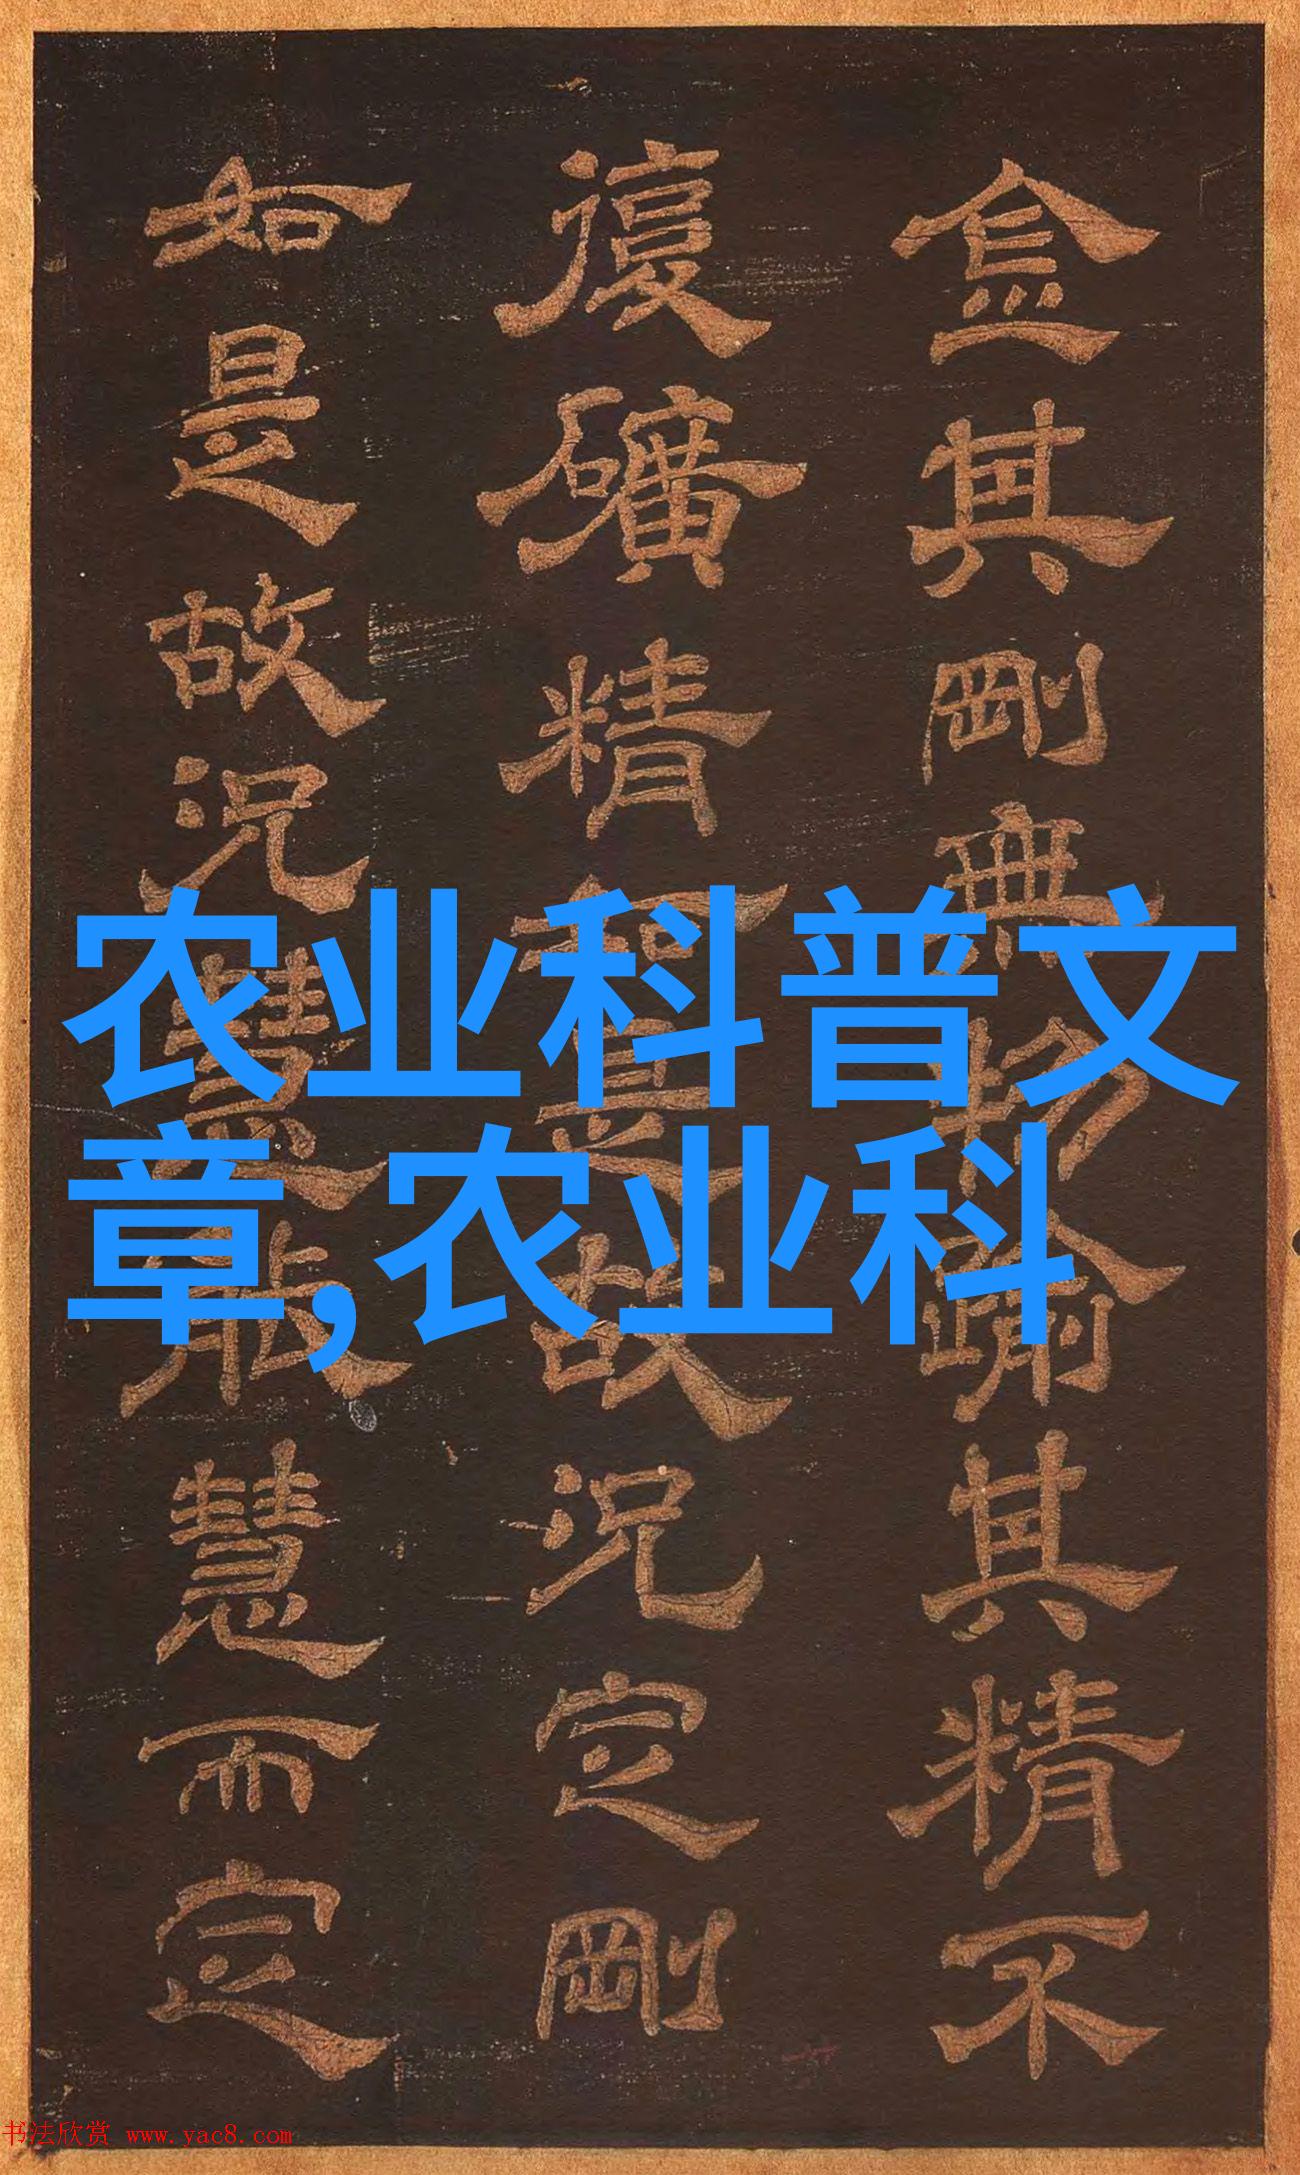 金其剛無物踰其精不
復礦精如是故況定剛
如是故況慧能慧而定
农业科普文
章,农业科
书法欣赏 www.yac8.com